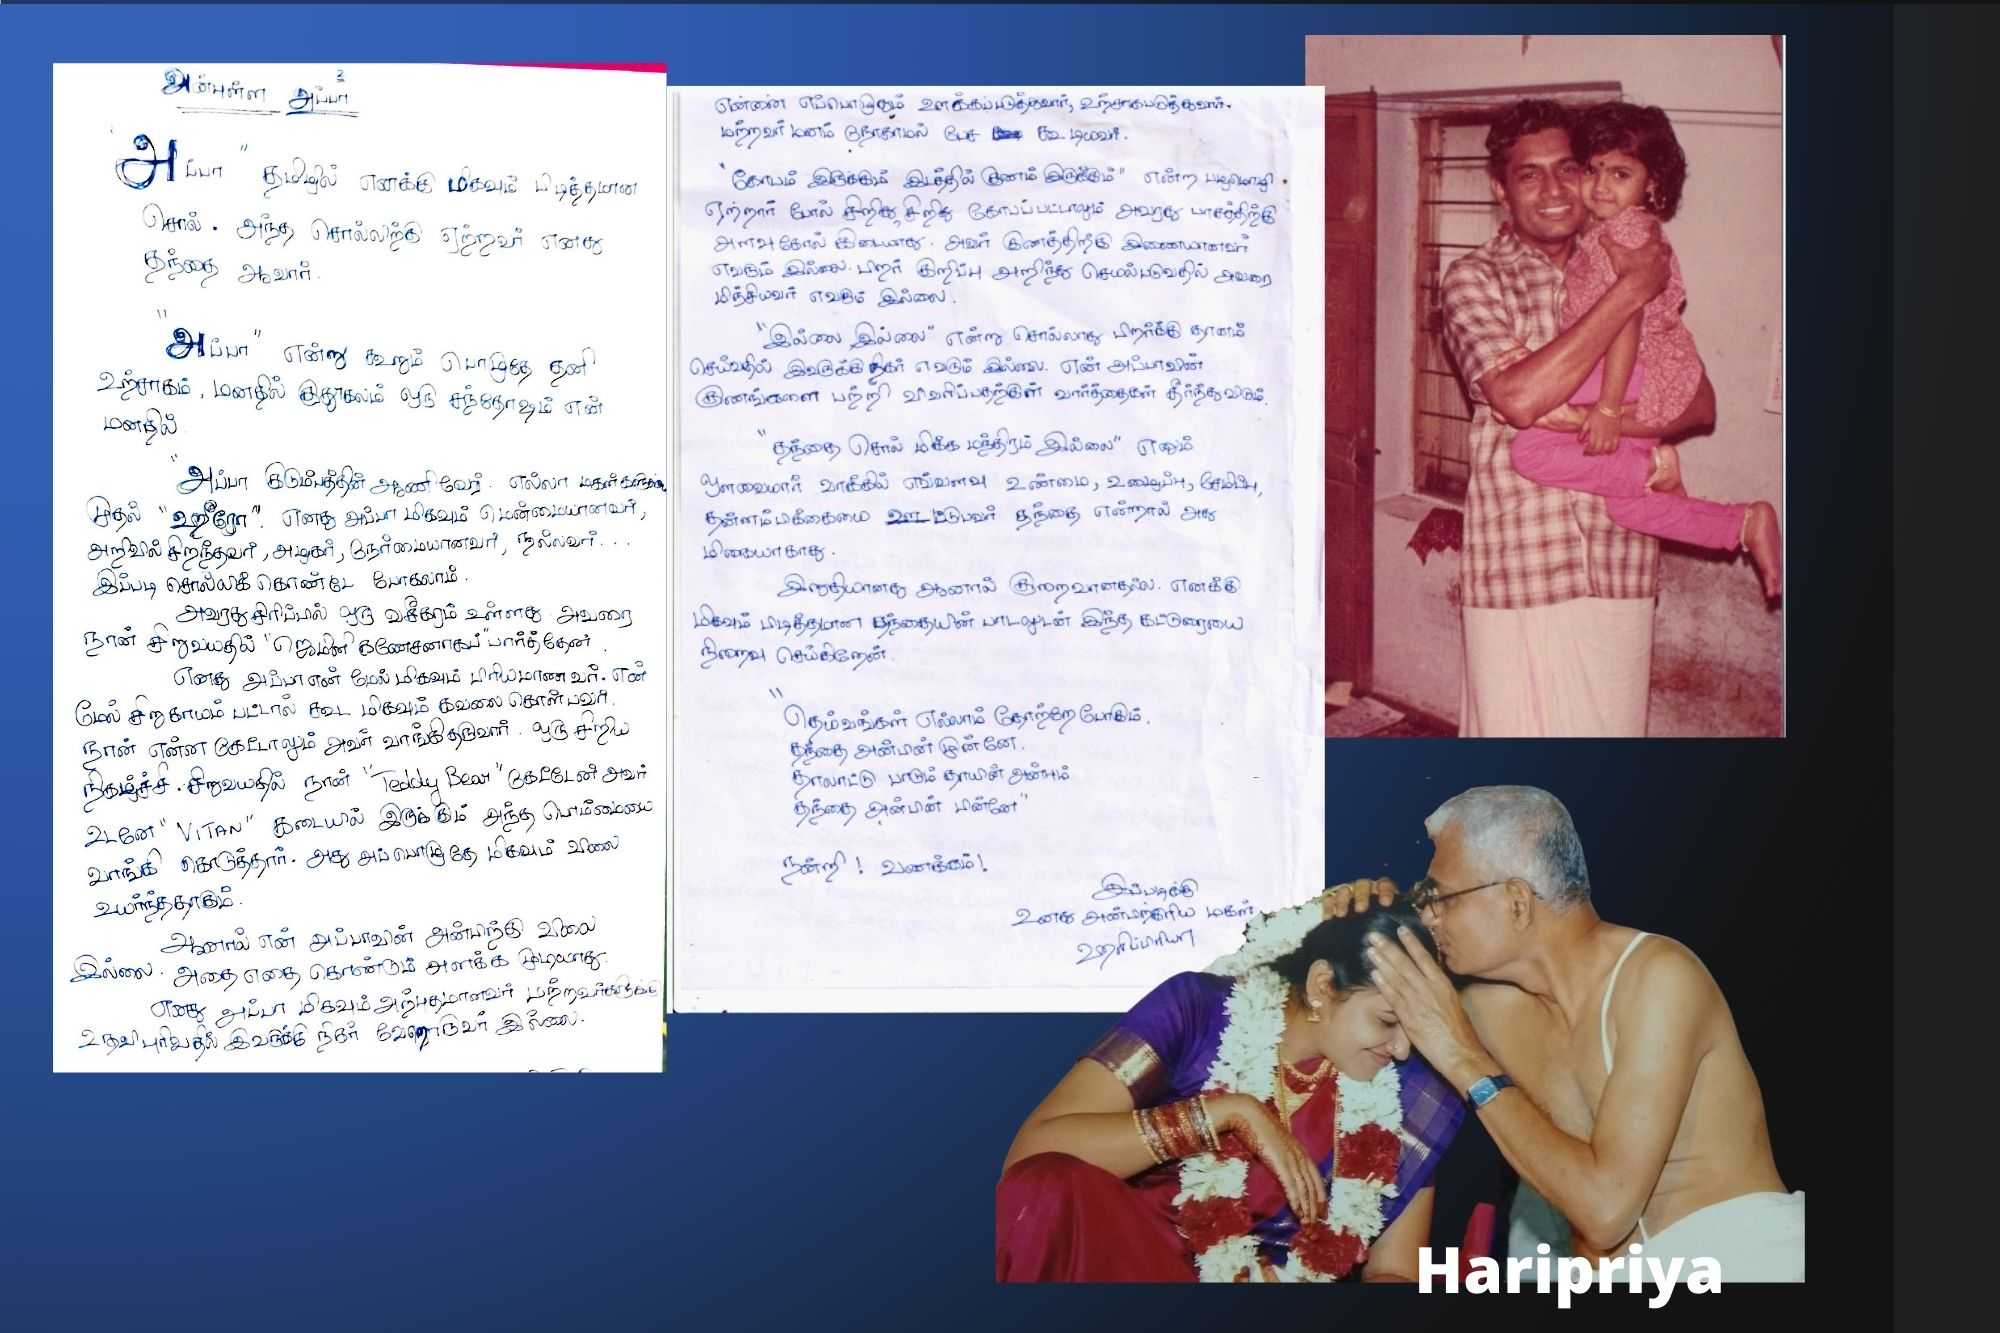 அன்புள்ள அப்பா
"அப்பா" தமிழில் எனக்கு மிகவும் பிடித்தமான
சொல். அந்த சொல்லிற்கு ஏற்றவர் எனது
தந்தை ஆவார்.
"அப்பா" என்று கூறும் பொழுதே தனி
உற்சாகம், மனதில் குதூகலம் ஒரு சந்தோஷம் என்
மனதில்
"அப்பா குடும்பத்தின் ஆணி வேர். எல்லா மகள்களுக்கு
முதல் "ஹீரோ". எனது அப்பா மிகவும் மென்மையானவர்,
அறிவில் சிறந்தவர், அழகர், நேர்மையானவர், நல்லவர்...
இப்படி சொல்லிக் கொண்டே போகலாம்.
அவரது சிரிப்பில் ஒரு வசீகரம் உள்ளது அவரை
நான் சிறுவயதில் "ஜெமினி கணேசனாகப்" பார்த்தேன்.
எனது அப்பா என் மேல் மிகவும் பிரியமாணவர். என்
மேல் சிறு காயம் பட்டால் கூட மிகவும் கவலை கொள்பவர்.
நான் என்ன கேட்டாலும் அவர் வாங்கிதருவார். ஒரு சிறிய
நிகழ்ச்சி. சிறுவயதில் நான் "Teddy Bear" கேட்டேன் அவர்
உடனே "VITAN" கடையில் இருக்கும் அந்த பொம்மையை
வாங்கி கொடுத்தார். அது அப்பொழுதே மிகவும் விலை
உயர்ந்ததாகும்.
ஆனால் என் அப்பாவின் அன்பிற்கு விலை
இல்லை. அதை எதை கொண்டும் அளக்க முடியாது.
எனது அப்பா மிகவும் அற்புதமானவர் மற்றவர்களுக்கு
உதவி புரிவதில் இவருக்கு நிகர் வேறொருவர் இல்லை.
என்னை எப்பொழுதும் ஊக்கப்படுத்துவார், உற்சாகபடுத்துவார்.
மற்றவர் மனம் நோகாமல் பேச கூடியவர்.
"கோபம் இருக்கும் இடத்தில் குணம் இருக்கும்" என்ற பழமொழி
ஏற்றார் போல் சிறிது சிறிது கோபப்பட்டாலும் அவரது பாசத்திற்கு
அளவு கோல் கிடையாது. அவர் குணத்திற்கு இணையானவர்
எவரும் இல்லை. பிறர் குறிப்பு அறிந்து செயல்படுவதில் அவரை
மிஞ்சியவர் எவரும் இல்லை.
"இல்லை இல்லை" என்று சொல்லாது பிறர்க்கு தானம்
செய்வதில் இவருக்கு நிகர் எவரும் இல்லை. என் அப்பாவின்
குணங்களை பற்றி விவரிப்பதற்குள் வார்த்தைகள் தீர்ந்துவிடும்.
"தந்தை சொல் மிக்க மந்திரம் இல்லை" எனும்
ஔவையார் வாக்கில் எவ்வளவு உண்மை, உழைப்பு, சேமிப்பு,
தன்னம்பிக்கையை ஊட்டுபவர் தந்தை என்றால் அது
மிகையாகாது.
இறுதியானது ஆனால் குறைவானதல்ல. எனக்கு
மிகவும் பிடித்தமான தந்தையின் பாடலுடன் இந்த கட்டுரையை
நிறைவு செய்கிறேன்.
"தெய்வங்கள் எல்லாம் தோற்றே போகும்.
தந்தை அன்பின் முன்னே.
தாலாட்டு பாடும் தாயின் அன்பும்
தந்தை அன்பின் பின்னே"
நன்றி! வணக்கம்!
இப்படிக்கு
உனது அன்பிற்குரிய மகள்
ஹரிப்ரியா
Haripriya